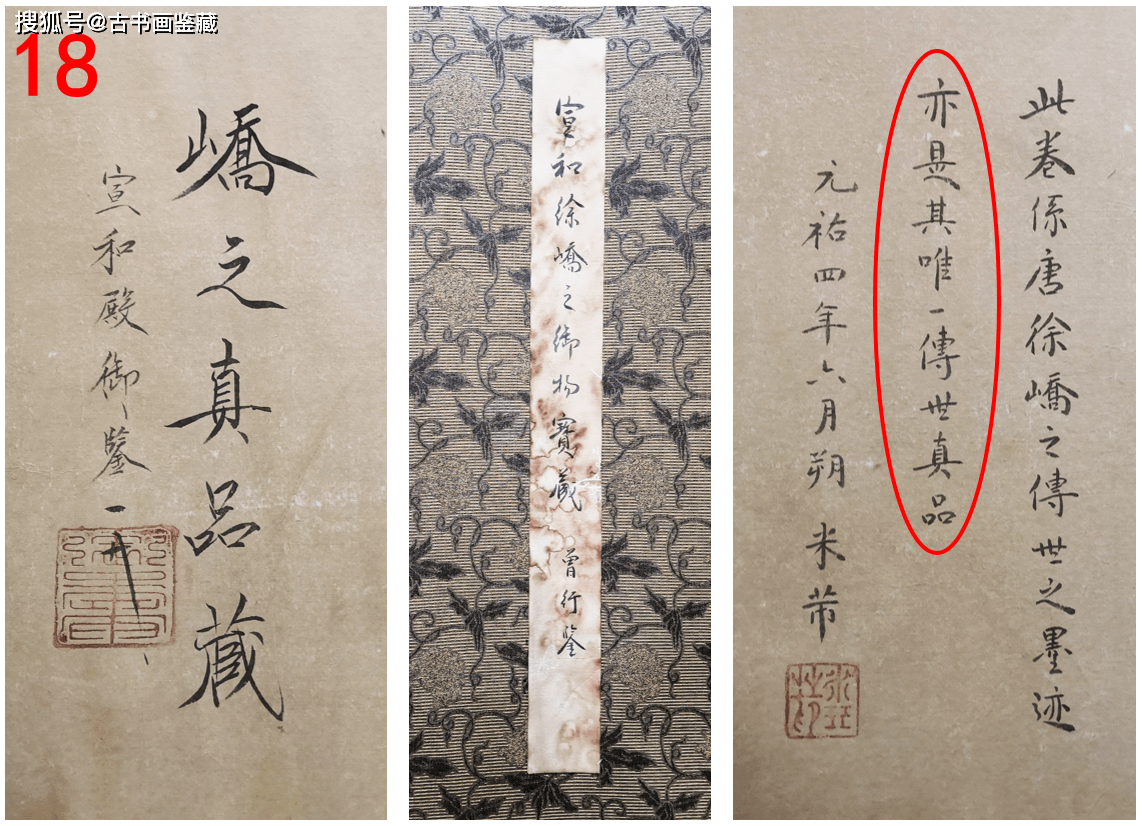 搜狐号@古书画鉴藏
18
嶠之真品藏
宣和殿御鑒
宣和徐嶠之御物寶藏 曾行鉴
此卷係唐徐嶠之傳世之墨迹
亦是其唯一傳世真品
元祐四年六月朔 米芾